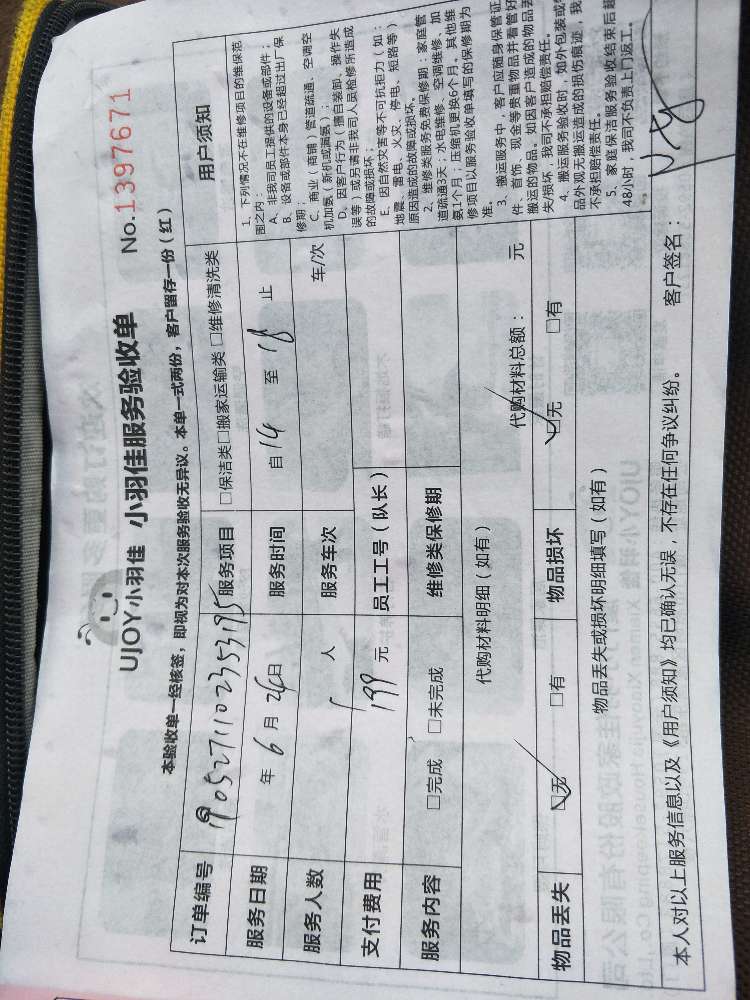 UJOY小羽佳 小羽佳服务验收单 No.1397671
本验收单一经核签，即视为对本次服务验收无异议。本单一式两份，客户留存一份（红）
订单编号 服务项目 □保洁类□搬家运输类 □维修清洗类 用户须知
服务日期 年 6 月 26 日 服务时间 自 14 至 18 止
服务人数 1 人 服务车次 车/次
支付费用 199 元 员工工号（队长）
服务内容 □完成 □未完成 维修类保修期
1、下列情况不在维修项目的维保范
围之内：
A、非我司员工提供的设备或部件；
B、设备或部件本身已经超过出厂保
修期；
C、商业（商铺）管道疏通、空调空
机加氨（新机或漏氨）；
D、因客户行为（擅自装卸、操作失
误等）或另请非我司人员检修所造成
的故障或损坏；
E、因自然灾害等不可抗拒力（如：
地震、雷电、火灾、停电、短路等）
原因造成的故障或损坏。
2、维修类服务免费保修期：家庭管
道疏通3天；水电维修、空调维修、加
氨1个月；压缩机更换6个月。其他维
修项目以服务验收单填写的保修期为
准。
3、搬运服务中，客户应随身保管证
件、首饰、现金等贵重物品并看管好
搬运的物品。如因客户造成的物品丢
失/损坏，我司不承担赔偿责任。
4、搬运服务验收时，如外包装或
品外观无搬运造成的损伤痕迹，我
不承担赔偿责任。
5、家庭保洁服务验收结束后超
48小时，我司不负责上门返工。
代购材料明细（如有） 代购材料总额： 元
物品丢失 ☑无 □有 物品损坏 ☑无 □有
物品丢失或损坏明细填写（如有）
本人对以上服务信息以及《用户须知》均已确认无误，不存在任何争议纠纷。 客户签名：